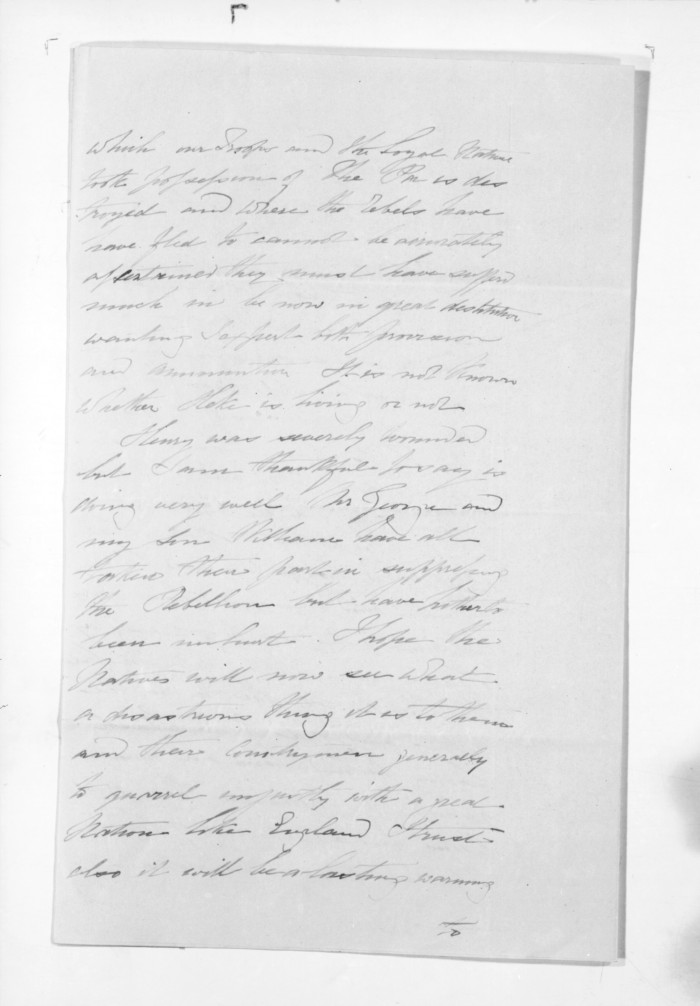 which our Troops and the Loyal Natives
took possession of The Pa is des
troyed and where the rebels have
have fled to cannot be accurately
assertained they must have sufferd
much in be now in great destitution
wanting I expect both provision
and ammunition It is not known
whether Heke is living or not
Henry was severely wounded
but I am thankful to say is
doing very well Mr George and
my Son William have all
taken their part in suppressing
the Rebellion but have hitherto
been unhurt. I hope the
Natives will now see what
a disastrious thing it is to them
and their Countrymen generely
to quarrel unjustly with a great
Nation like England I trust
also it will be a lasting warning
to